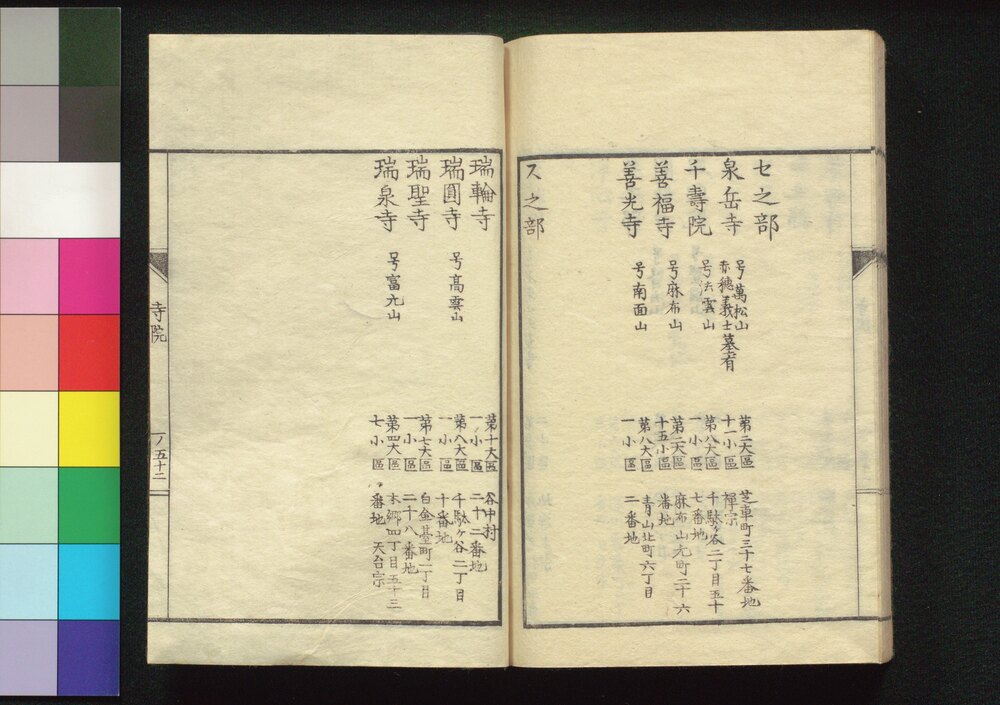 セ之部
泉岳寺 号萬松山 第二大區 芝車町三十七番地
赤穗義士墓有 十一小區 禅宗
千壽院 号法雲山 第八大區 千駄ヶ谷二丁目五十
一小區 七番地
善福寺 号麻布山 第二大區 麻布山元町二十六
十五小區 番地
善光寺 号南面山 第八大區 青山北町六丁目
一小區 二番地
ス之部
瑞輪寺 第十大區 谷中村
一小區 二十二番地
瑞圓寺 号高雲山 第八大區 千駄ヶ谷二丁目
一小區 十番地
瑞聖寺 第七大區 白金臺町二丁目
一小區 二十八番地
瑞泉寺 号富元山 第四大區 本郷四丁目五十三
七小區 番地 天台宗
寺院
ノ五十二